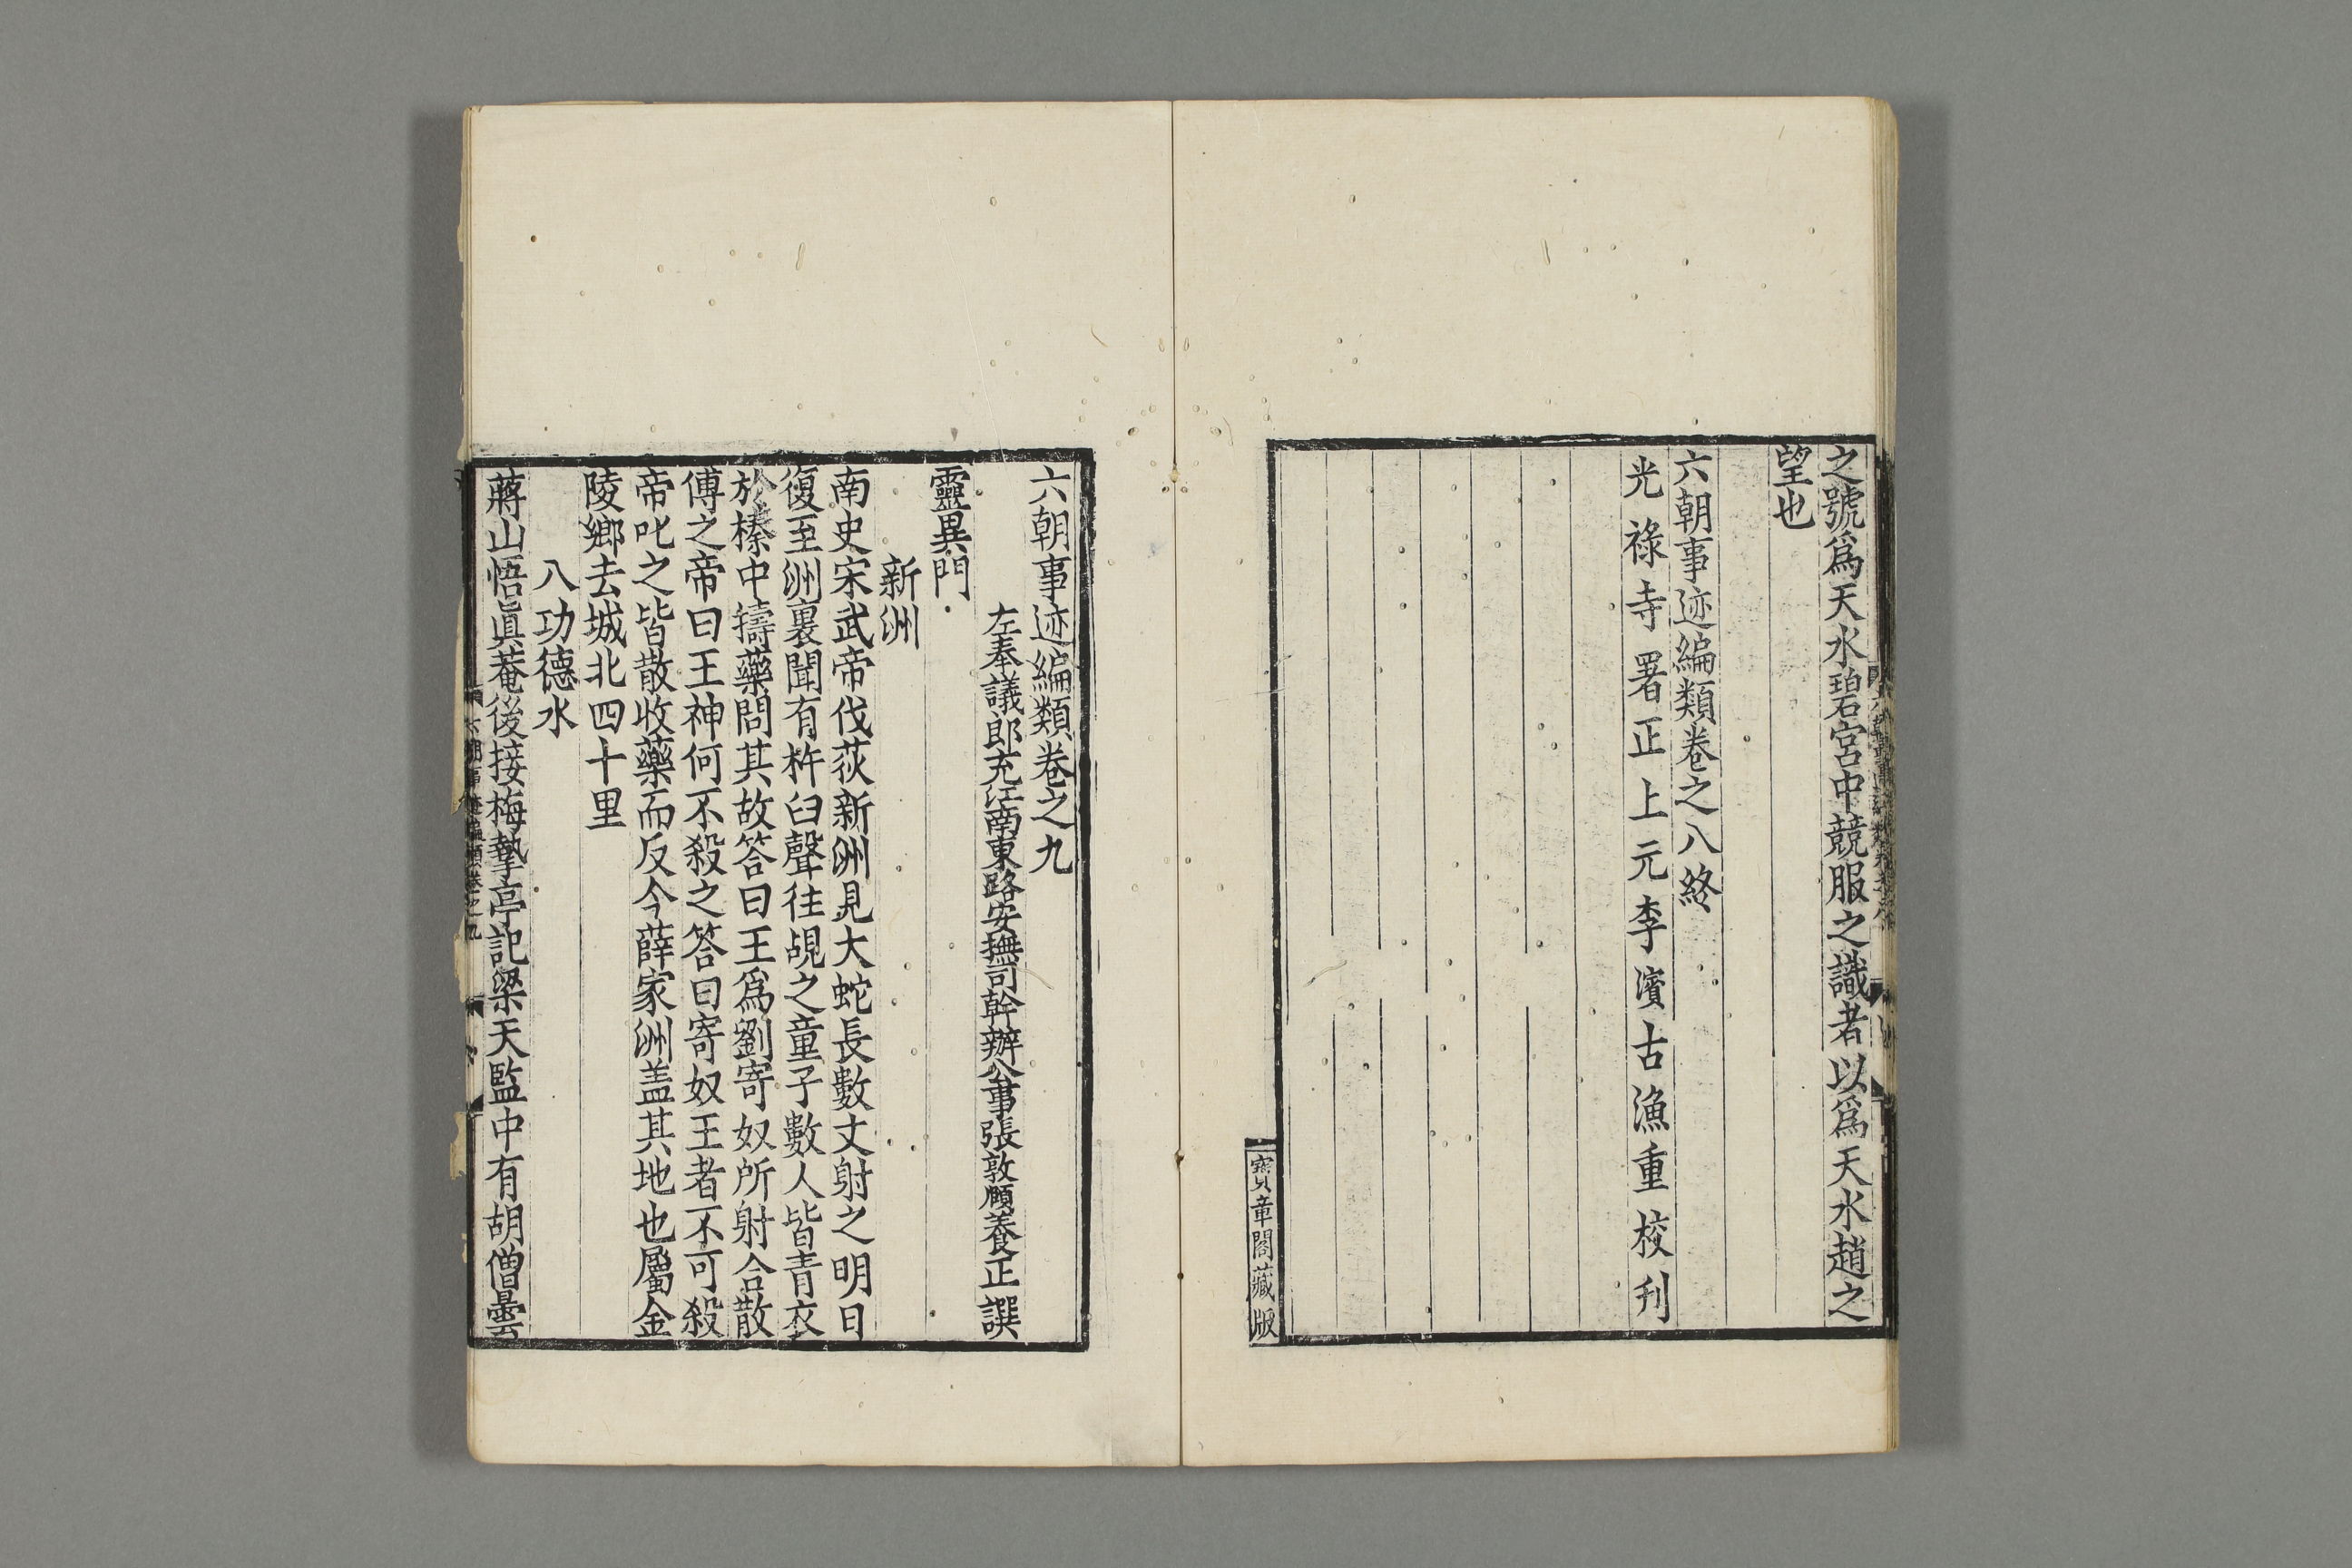 之號爲天水碧宮中競服之識者以爲天水趙之
望也
六朝事迹編類卷之八終
光祿寺署正上元李濱古漁重校刋
寶章閣藏版
六朝事迹編類卷之九
左奉議郎充江南東路安撫司幹辦公事張敦頤養正譔
靈異門
新洲
南史宋武帝伐荻新洲見大蛇長數丈射之明日
復至洲裏聞有杵臼聲往覘之童子數人皆青衣
於榛中擣藥問其故答曰王爲劉寄奴所射合散
傅之帝曰王神何不殺之答曰寄奴王者不可殺
帝叱之皆散收藥而反今薛家洲盖其地也屬金
陵鄉去城北四十里
八功德水
蔣山悟眞菴後接梅摯亭記梁天監中有胡僧曇
六朝事迹編類卷之九